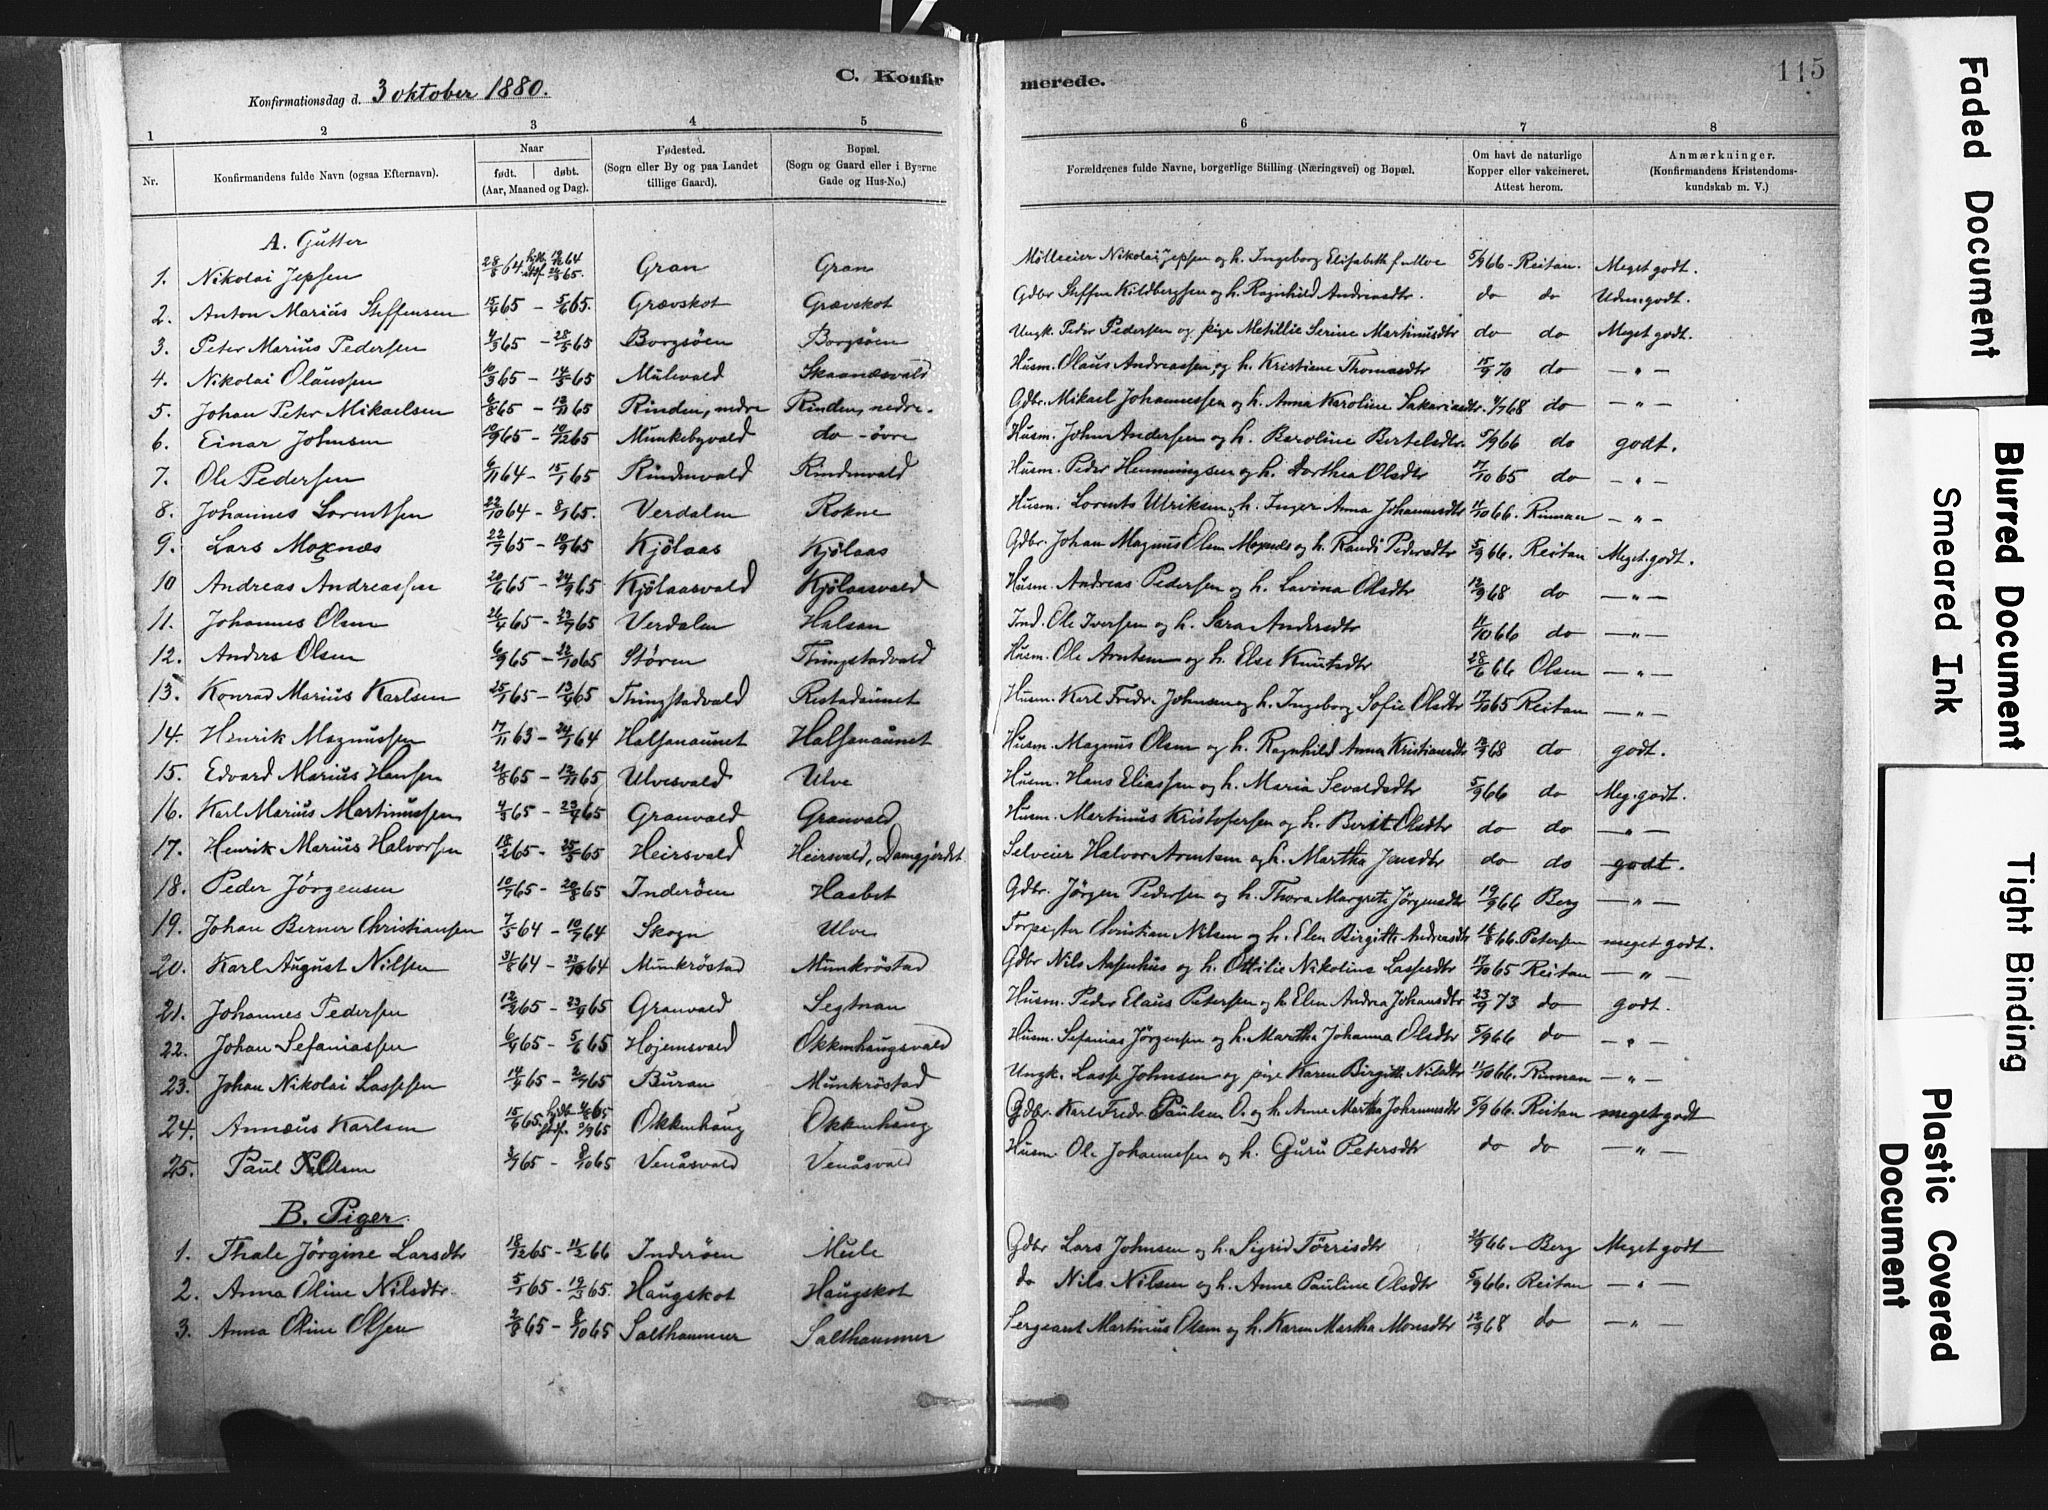 C. Konfir
merede.
115
Konfirmationsdag d. 3 oktober 1880.
1 2 3 4 5 6 7 8
Nr. Konfirmandens fulde Navn (ogsaa Efternavn). Naar født. døbt. (Aar, Maaned og Dag). Fødested. (Sogn eller By og paa Landet tillige Gaard). Bopæl. (Sogn og Gaard eller i Byerne Gade og Hus-No.) Forældrenes fulde Navne, borgerlige Stilling (Næringsvei) og Bopæl. Om havt de naturlige Kopper eller vakcineret. Attest herom. Anmærkninger. (Konfirmandens Kristendomskundskab m. V.)
A. Gutter
1. Nikolai Jepsen 28/8 64 Gran Gran Mølleeier Nikolai Jepsen og h. Ingeborg Elisabeth f. Moe 5/9 66 - Reitan. Meget godt.
2. Anton Marius Steffensen 15/4 65 - 5/6 65. Grævskot Grævskot Gdbr Steffen Kildbergsen og h. Ragnhild Andreasdtr. do do Udm. godt.
3. Peter Marius Pedersen 4/3 65 - 28/5 65 Borgsöen Borgsöen Ungk. Peder Pedersen og pige Metillie Serine Martinusdtr do do Meget godt.
4. Nikolai Olaussen 10/3 65 - 14/5 65 Mulevald Skaanæsvald Husm. Olaus Andreassen og h. Kristiene Thomasdtr 15/9 70 do — " —
5. Johan Peter Mikaelsen 6/8 65 - 12/11 65 Rinden, nedre Rinden, nedre. Gdbr. Mikael Johannessen og h. Anna Karoline Sakariasdtr. 4/7 68 do — " —
6. Einar Johnsen 10/9 65 - 10/12 65 Munkebyvald do - övre Husm. John Andersen og h. Beroline Bertelsdtr. 5/9 66 do godt.
7. Ole Pedersen 6/11 64 - 15/1 65 Rindenvald Rindenvald Husm. Peder Henningsen og h. Dorthea Olsdtr 17/10 65 do — " —
8. Johannes Lorentsen 22/10 64 - 8/1 65. Verdalen Rokne Husm. Lorents Ulriksen og h. Inger Anna Johannesdtr 11/10 66. Rinnan — " —
9. Lars Moxnæs 22/7 65 - 10/9 65 Kjölaas Kjölaas Gdbr. Johan Magnus Olsen Moxnæs og h. Randi Pedersdtr 5/9 66. Reitan Meget godt.
10 Andreas Andreassen 20/6 65 - 24/9 65 Kjölaasvald Kjölaasvald Husm. Andreas Pedersen og h. Lavina Olsdtr 12/9 68 do — " —
11. Johannes Olsen 26/4 65 - 23/7 65 Verdalen Halsan Ind. Ole Iversen og h. Sara Andersdtr 11/10 66 do — " —
12. Anders Olsen 6/9 65 - 22/10 65 Støren Thingstadvald Husm. Ole Arntsen og h. Else Knutsdtr 28/6 66 Olsen — " —
13. Konrad Marius Karlsen 25/1 65 - 17/4 65 Thingstadvald Restadaunet Husm. Karl Fredr. Johnsen og h. Ingeborg Sofie Olsdtr 17/10 65 Reitan — " —
14. Henrik Magnussen 17/11 63 - 24/1 64 Halsanaunet Halsanaunet Husm. Magnus Olsen og h. Ragnhild Anna Kristiansdtr 12/9 68 do godt.
15. Edvard Marius Hansen 21/8 65 - 12/11 65 Ulvesvald Ulve Husm. Hans Eliassen og h. Maria Sevaldsdtr 5/9 66 do Meg. godt.
16. Karl Marius Martinussen 4/3 65 - 23/4 65 Granvald Granvald Husm. Martinus Kristofersen og h. Berit Olsdtr do do — " —
17. Henrik Marius Halvorsen 18/2 65 - 25/5 65 Heirsvald Heirsvald, Damgjerdet. Selveier Halvor Arntsen og h. Martha Jensdtr do do godt.
18. Peder Jörgensen 10/7 65 - 20/8 65 Inderöen Hasbet Gdbr. Jörgen Pedersen og h. Thora Margrete Jörgensdtr 19/9 66 Berg — " —
19. Johan Berner Christiansen 7/5 64 - 10/7 64 Skogn Ulve Forpagter Christian Nilsen og h. Elen Birgitte Andreasdtr 16/8 66. Petersen meget godt.
20. Karl August Nilsen 31/8 64 - 23/10 64 Munkröstad Munkröstad Gdbr Nils Aasenhus og h. Ottilie Nikoline Lassesdtr 17/10 65 Reitan — " —
21. Johannes Pedersen 12/2 65 - 23/4 65 Granvald Segtnan Husm. Peder Elaus Petersen og h. Elen Andrea Johansdtr 23/9 73 do godt.
22. Johan Sefaniassen 6/4 65 - 5/6 65 Hojemsvald Okkenhaugsvald Husm. Sefanias Jörgensen og h. Martha Johanna Olsdtr 5/9 66 do — " —
23. Johan Nikolai Lassesen 14/4 65 - 2/7 65 Buran Munkröstad Ungk. Lasse Johnsen og pige Karen Birgitte Nilsdtr 11/10 66. Rinnan — " —
24. Annæus Karlsen 15/6 65. Okkenhaug Okkenhaug Gdbr. Karl Fredr. Paulsen O. og h. Anne Martha Johannesdtr 5/9 66. Reitan meget godt
25. Paul Olsen 2/7 65 - 8/10 65 Venåsvald Venåsvald Husm Ole Johannesen og h. Guru Petersdtr do do — " —
B. Piger.
1. Thale Jörgine Larsdtr 18/12 65 - 11/2 66 Inderöen Mule Gdbr Lars Johnsen og h. Sigrid Törrisdtr 2/9 66 - Berg Meget godt
2. Anna Oline Nilsdtr. 5/1 65 - 19/3 65. Haugskot Haugskot do Nils Nilsen og h. Anne Pauline Olsdtr 5/9 66. Reitan — " —
3. Anna Oline Olsen 2/8 65 - 8/10 65 Salthammer Salthammer Sergeant Martinus Olsen og h. Karen Martha Monsdtr 12/9 68 do — " —
Faded Document
Blurred Document
Smeared Ink
Tight Binding
Plastic Covered Document